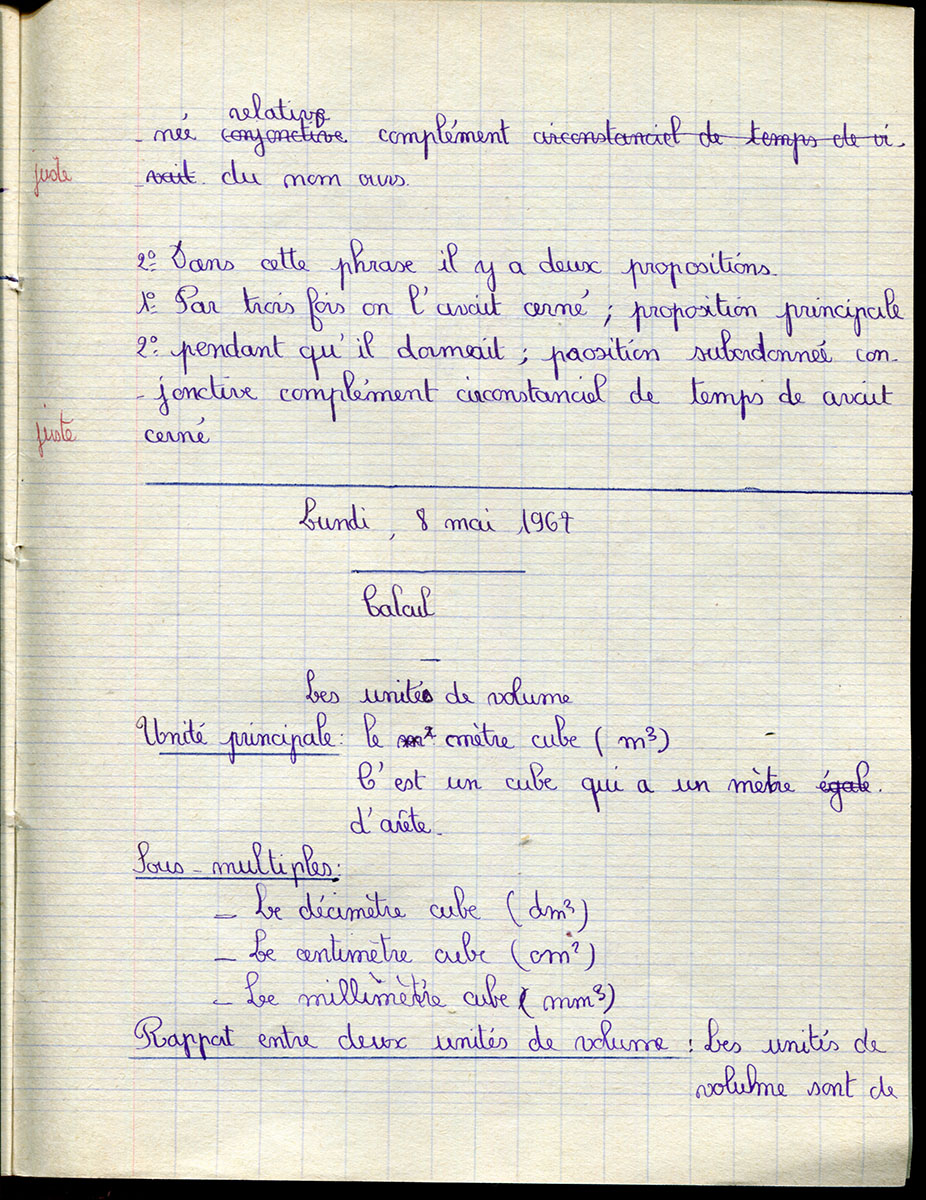 relative
- née conjonctive complément circonstanciel de temps de vi-
juste -vait. du nom ours.
2° Dans cette phrase il y a deux propositions.
1° Par trois fois on l'avait cerné ; proposition principale
2° pendant qu'il dormait ; paosition subordonneé con-
- jonctive complément circonstanciel de temps de avait
juste cerné
Lundi, 8 mai 1967
Calcul
Les unités de volume
Unité principale : le m² mètre cube ( m³)
C'est un cube qui a un mètre égale.
d'arête.
Sous-multiples :
- Le décimètre cube ( dm³)
- Le centimètre cube ( cm³)
- Le millimètre cube ( mm³)
Rapport entre deux unités de volume : Les unités de
volulme sont de